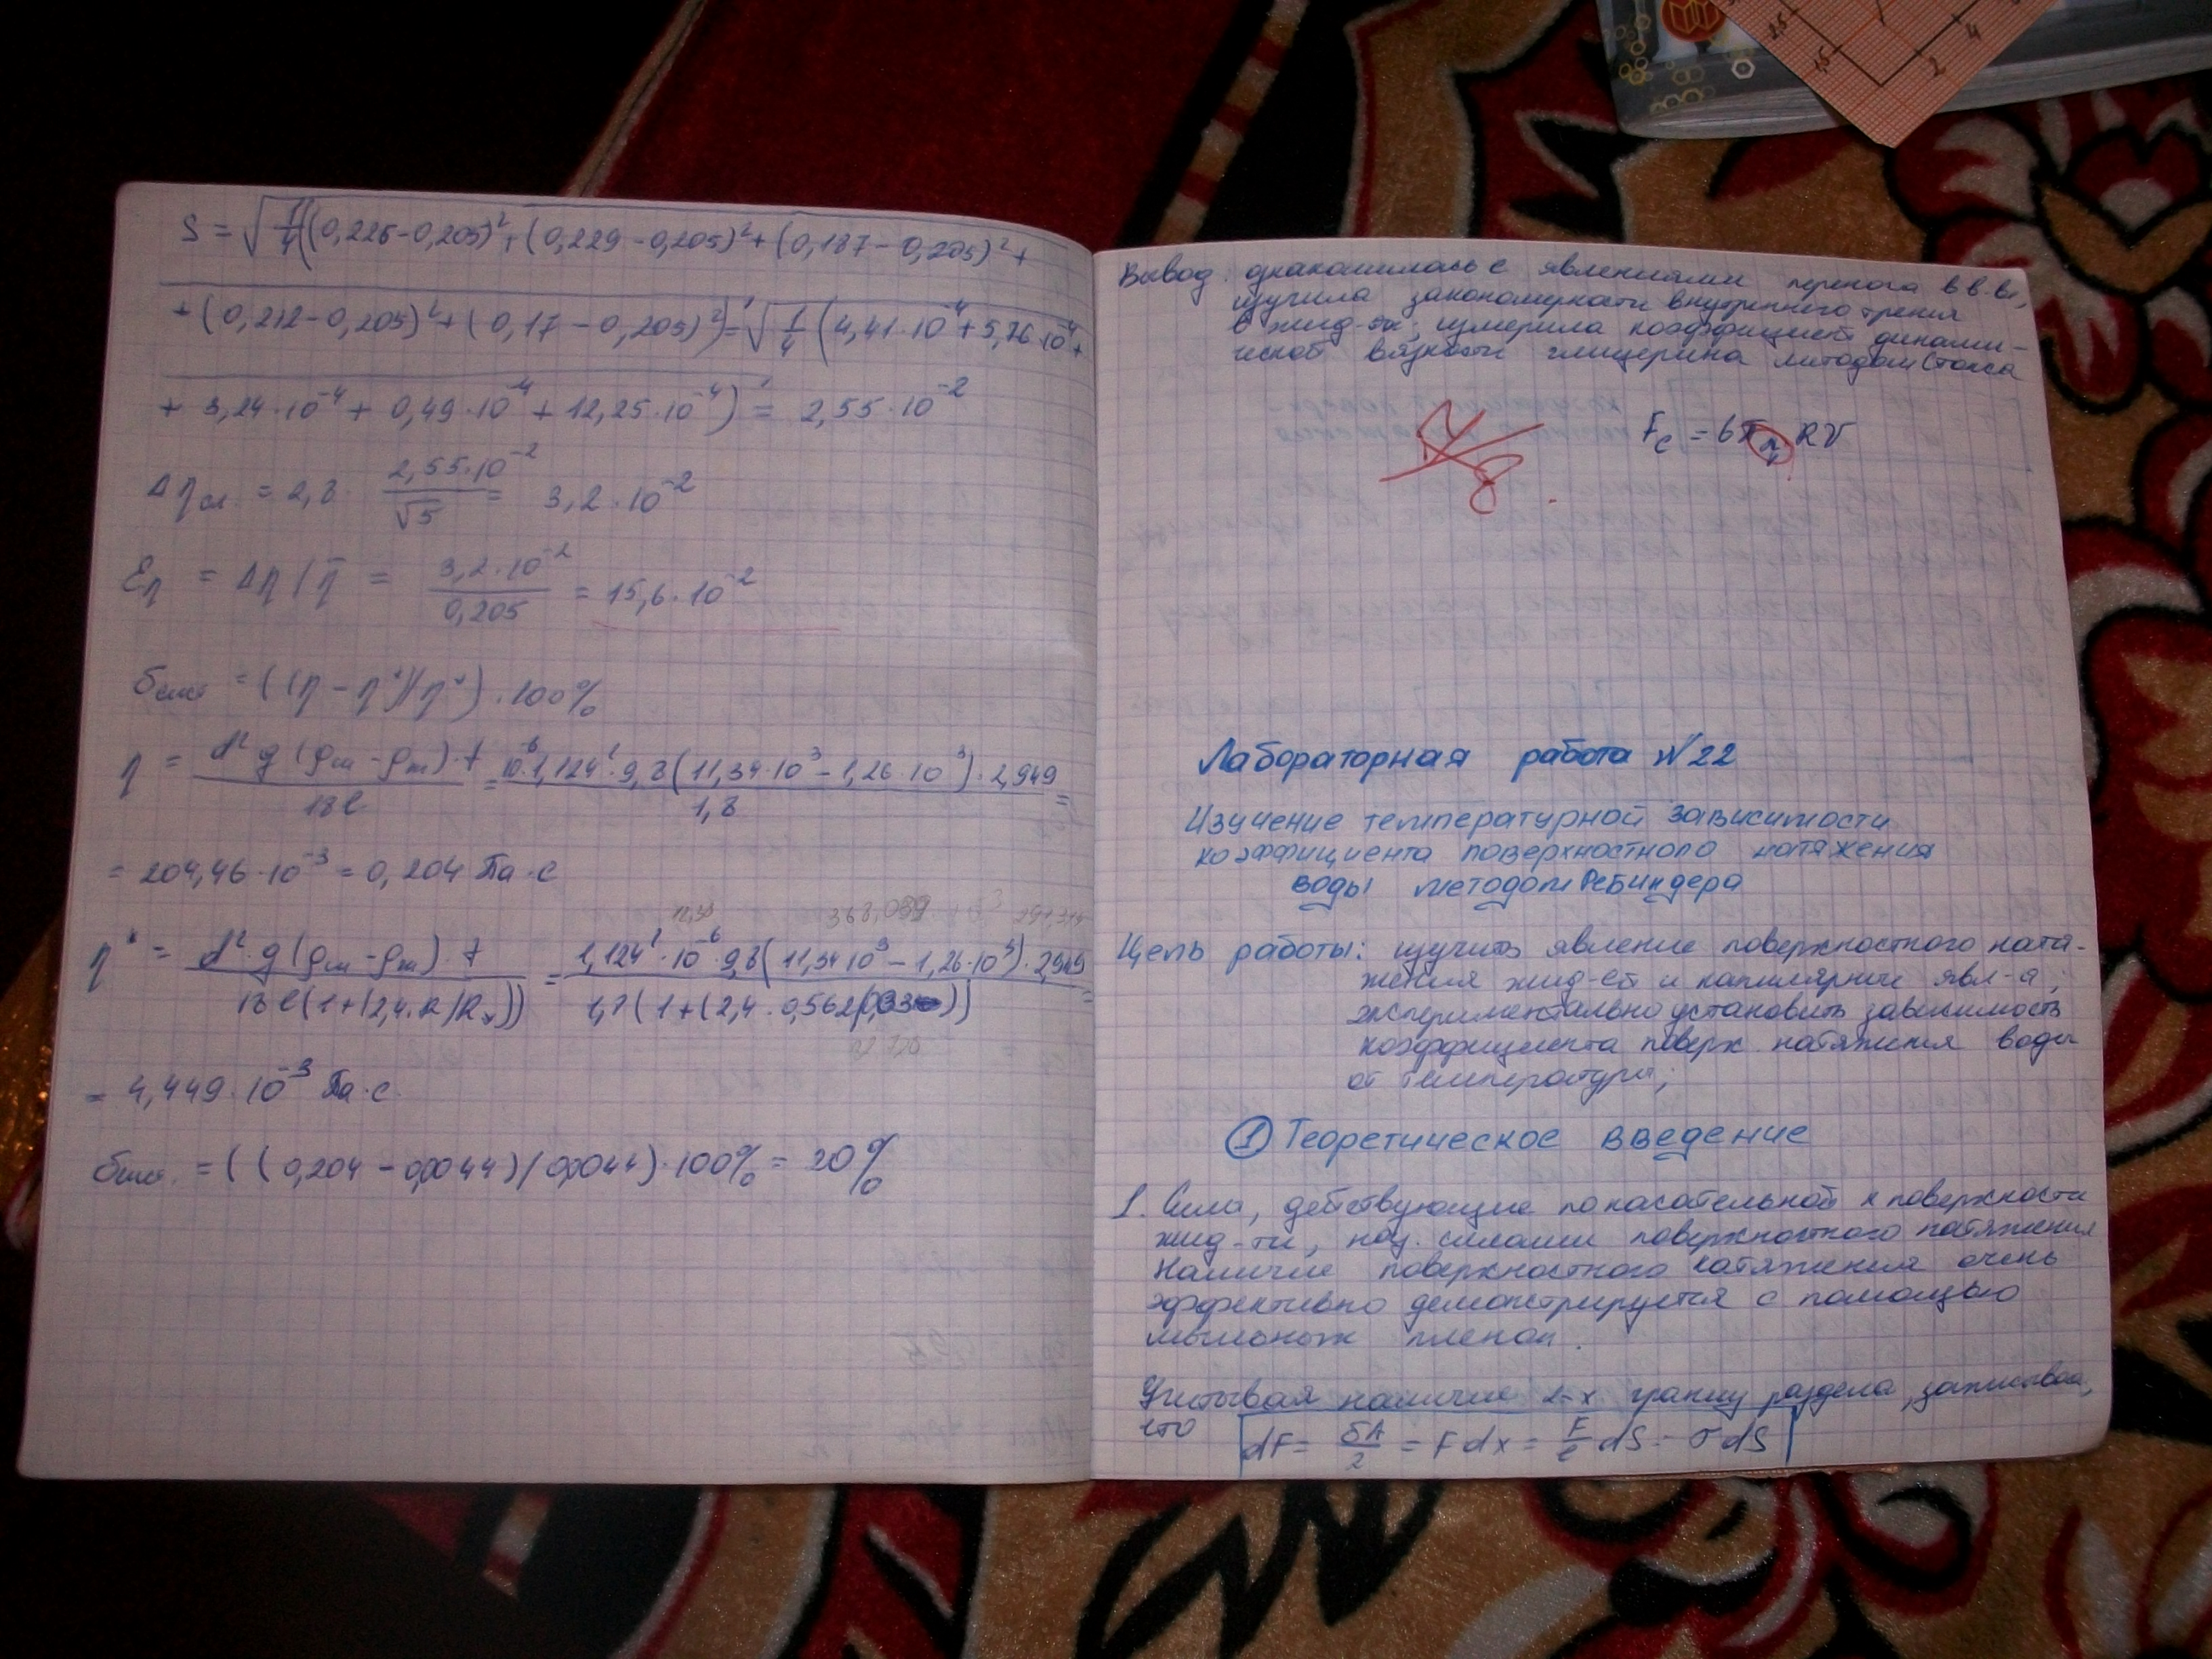 S = √(1/4((0,226 - 0,205)² + (0,229 - 0,205)² + (0,187 - 0,205)² +
+ (0,212 - 0,205)² + (0,17 - 0,205)²) = √(1/4 (4,41·10⁻⁴ + 5,76·10⁻⁴ +
+ 3,24·10⁻⁴ + 0,49·10⁻⁴ + 12,25·10⁻⁴) = 2,55·10⁻²
Δη сл = 2,8 · 2,55·10⁻² / √5 = 3,2·10⁻²
Ɛη = Δη / η̄ = 3,2·10⁻² / 0,205 = 15,6·10⁻²
δсист = ((η - η*)/η*) · 100%
η = d² g (ρш - ρж) · t / 18 l = 10⁻⁶·1,124²·9,8(11,34·10³ - 1,26·10³)·2,949 / 1,8 =
= 204,46·10⁻³ = 0,204 Па·с
368,039
η* = d²·g(ρш - ρж)·t / 18 l(1+(2,4·R/R)) = 1,124²·10⁻⁶·9,8(11,34·10³ - 1,26·10³)·2,949 / 1,8(1+(2,4·0,562 =
= 4,449·10⁻³ Па·с
δсист. = ((0,204 - 0,0044)/0,0044)·100% = 20%
Вывод: ознакомилась с явлениями переноса в в-ве,
изучила закономерности внутреннего трения
в жид-ти, измерила коэффициент динами-
ческой вязкости глицерина методом Стокса
Fc = 6πηRV
Лабораторная работа №22
Изучение температурной зависимости
коэффициента поверхностного натяжения
воды методом Ребиндера
Цель работы: изучить явление поверхностного натя-
жения жид-ей и капилярные явл-я;
экспериментально установить зависимость
коэффициента поверх. натяжения воды
от температуры;
① Теоретическое введение
1. Сила, действующие по касательной к поверхности
жид-ти, наз. силами поверхностного натяжения
Наличие поверхностного натяжения очень
эффективно демонстрируется с помощью
мыльных пленок.
Учитывая наличие 2-х границ раздела,
что dF = δA/2 = Fdx = F/l dS = σdS